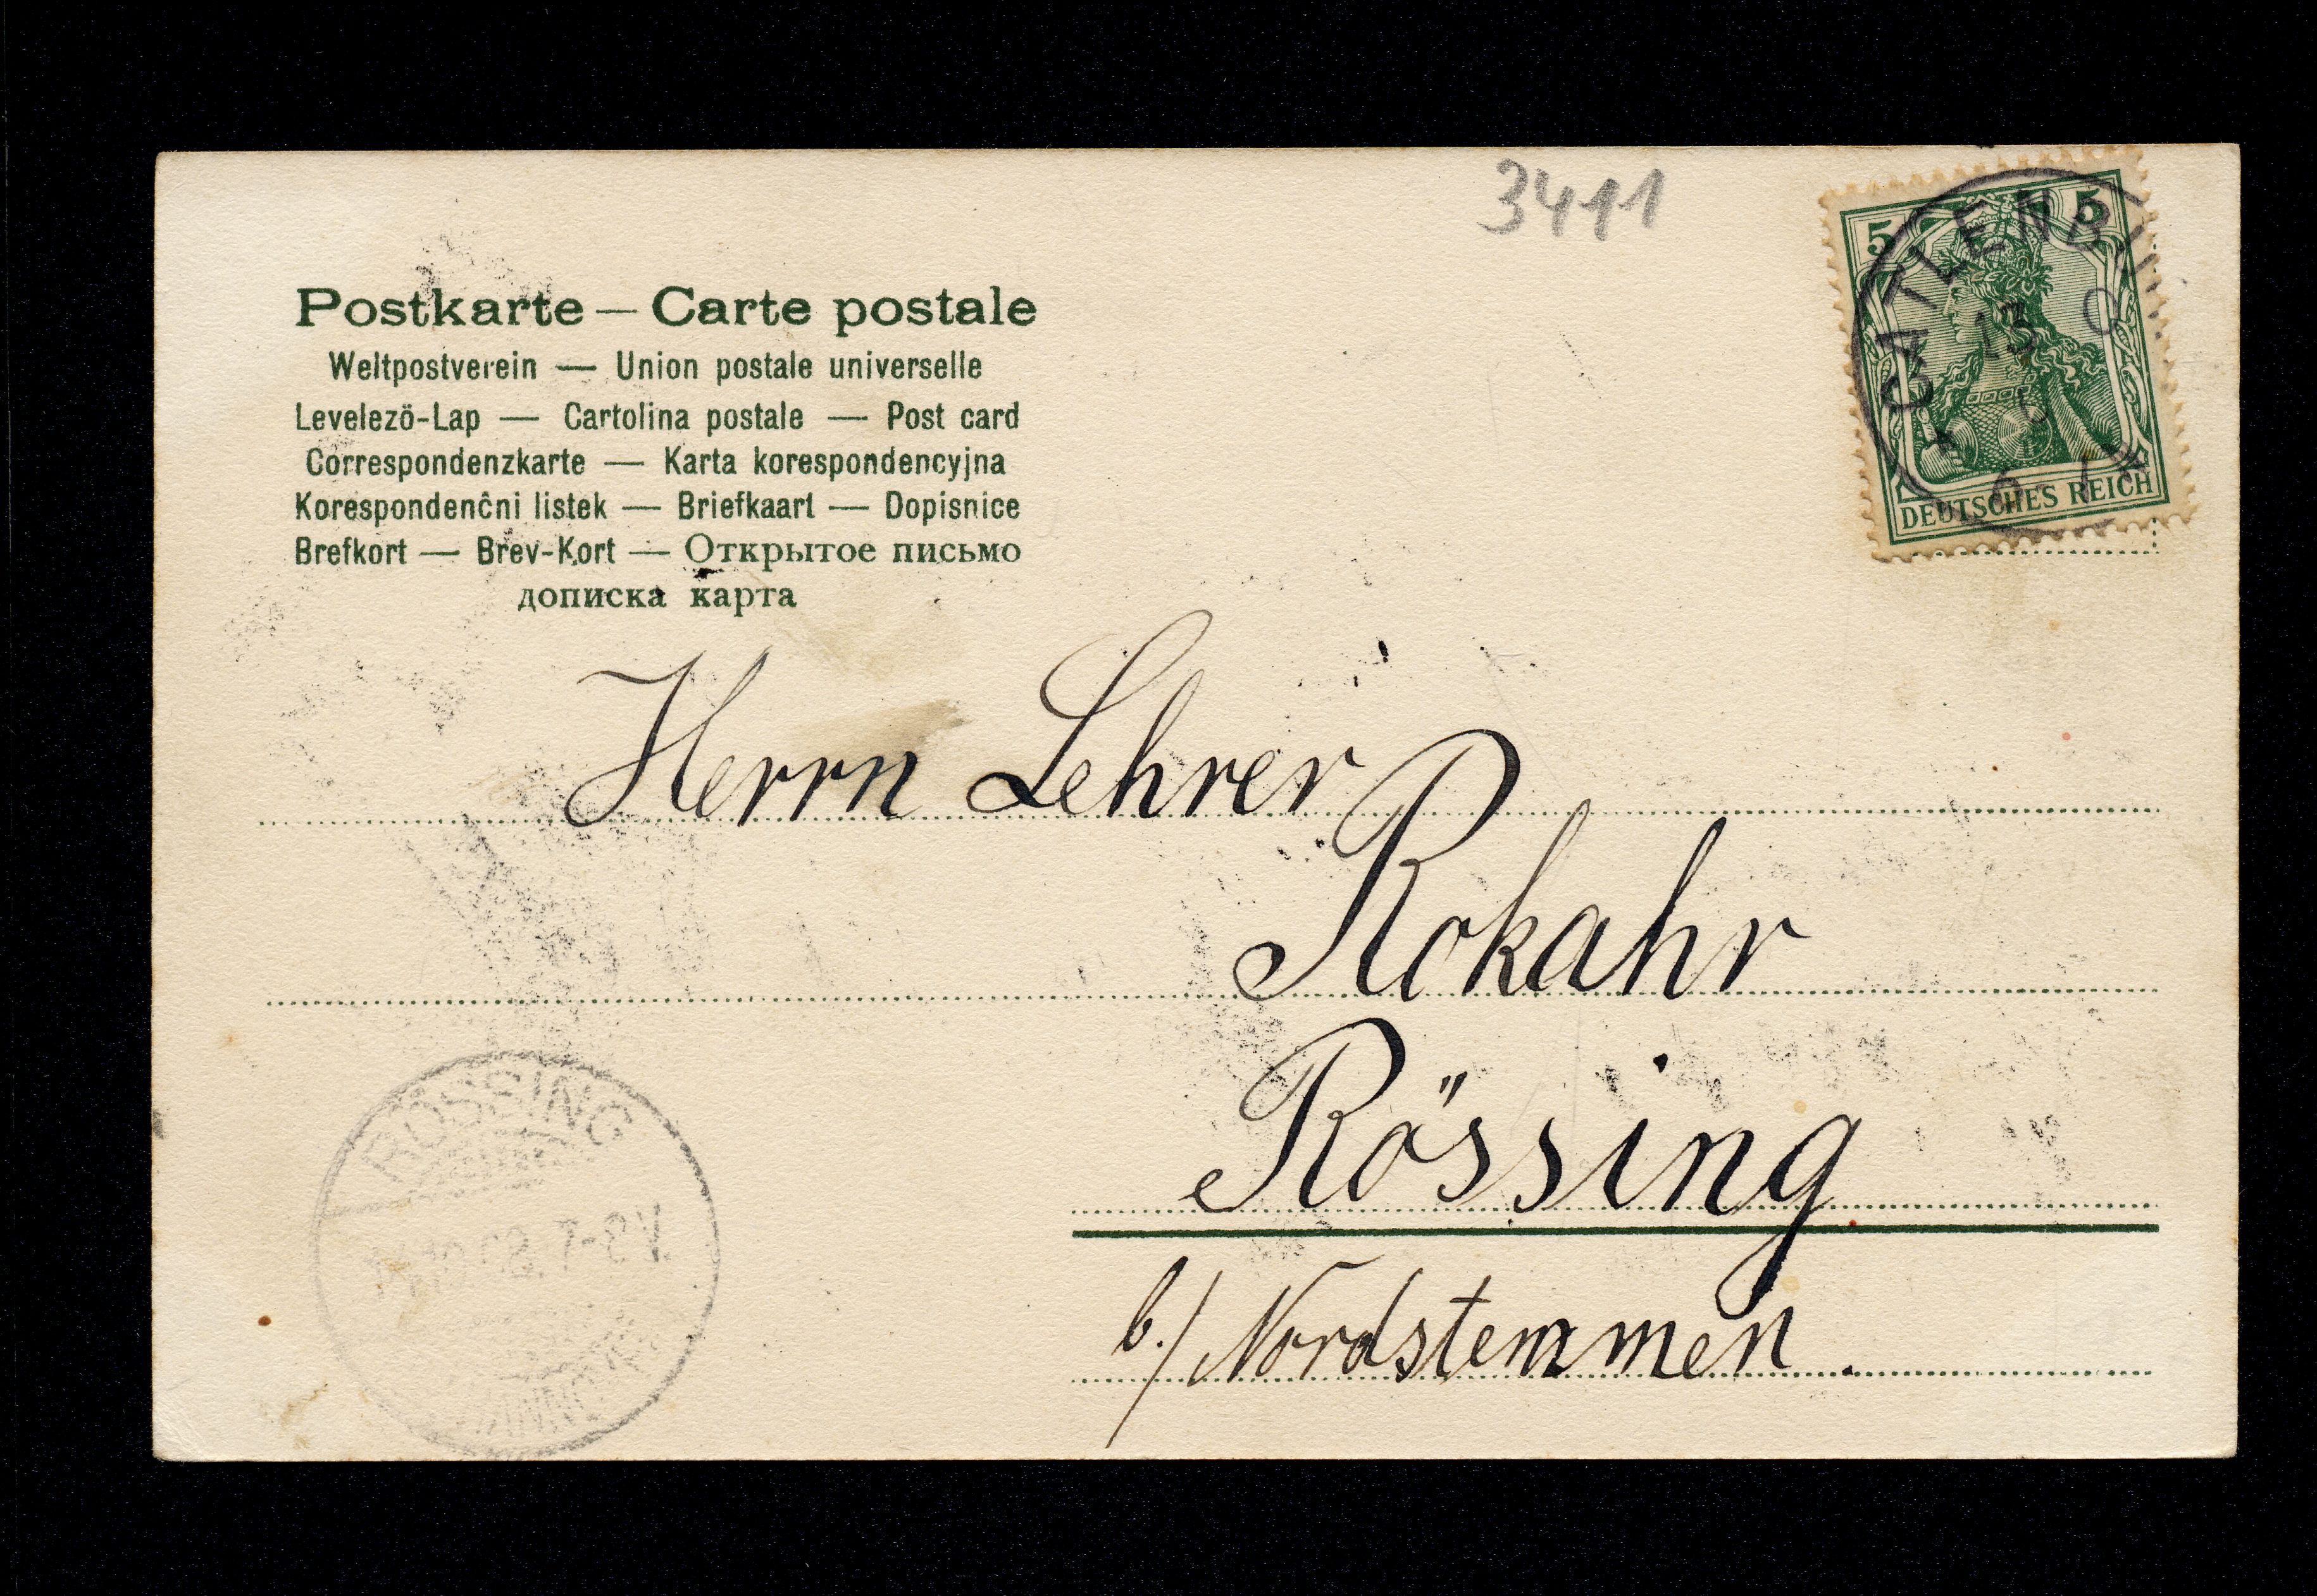 3411
5 5
CATLENBU
13
DEUTSCHES REICH
Postkarte — Carte postale
Weltpostverein — Union postale universelle
Levelező-Lap — Cartolina postale — Post card
Correspondenzkarte — Karta korespondencyjna
Korespondenčni listek — Briefkaart — Dopisnice
Brefkort — Brev-Kort — Открытое письмо
дописка карта
Herrn Lehrer
Rokahr
Rössing
b./ Nordstemmen.
RÖSSING
7-8V.